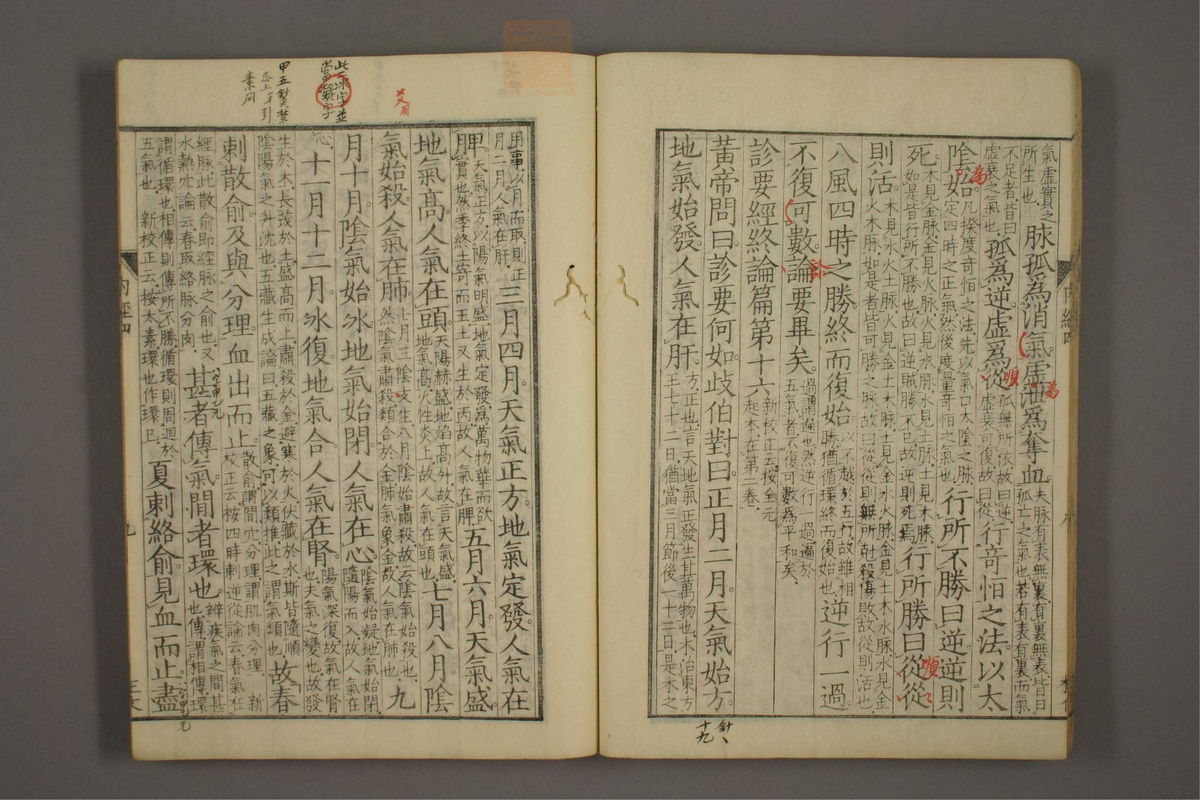 氣虛實之所生也脉孤爲消氣虛泄爲奪血夫脉有表無裏有裏無表皆曰孤亡之氣也若有表有裏而氣
不足者皆曰虛衰之氣也孤爲逆虛爲從孤無所依故曰逆虛衰可復故曰從行竒恒之法以太
陰始凡揆度竒恒之法先以氣口太陰之脉定四時之正氣然後度量竒恒之氣也行所不勝曰逆逆則
死木見金脉金見火脉火見水脉水見土脉土見木脉如是皆行所不勝也故曰逆賊勝不已故逆則死焉行所勝曰從從
則活木見水火土脉火見金土木脉土見金水火脉金見土木水脉水見金火木脉如是者皆可勝之脉故曰從從則無所尅殺傷敗故從則活也
八風四時之勝終而復始以不越於五行故雖相勝猶循環終而復始也逆行一過
不復可數論要畢矣過謂遍也然逆行一過遍於五氣者不復可數爲平和矣
診要經終論篇第十六新校正云按全元起本在第二卷
黃帝問曰診要何如歧伯對曰正月二月天氣始方
地氣始發人氣在肝方正也言天地氣正發生其萬物也木治東方王七十二日猶當三月節後一十二日是木之
用事以月而取則正月二月人氣在肝三月四月天氣正方地氣定發人氣在
脾天氣正方以陽氣明盛地氣定發爲萬物華而欲實也然季終土寄而王土又生於丙故人氣在脾五月六月天氣盛
地氣高人氣在頭天陽赫盛地焰高升故言天氣盛地氣高火性炎上故人氣在頭也七月八月陰
氣始殺人氣在肺七月三陰爻生八月陰始肅殺故云陰氣始殺也然陰氣肅殺類合於金肺氣象金故人氣在肺也九
月十月陰氣始冰地氣始閉人氣在心陰氣始凝地氣始閉隨陽而入故人氣在
心十一月十二月冰復地氣合人氣在腎陽氣深復故氣在腎也夫氣之變也故發
生於木長茂於土盛高而上肅殺於金避寒於火伏藏於水斯皆隨順陰陽氣之升沈也五藏生成論曰五藏之象可以類推此之謂氣類也故春
刺散俞及與分理血出而止散俞謂間穴分理謂肌肉分理 新校正云按四時刺逆從論云春氣在
經脉此散俞即經脉之俞也又水熱穴論云春取絡脉分肉甚者傳氣間者環也辨疾氣之間甚也傳謂相傳環
謂循環也相傳則傳所不勝循環則周迴於五氣也 新校正云按太素環也作環已夏刺絡俞見血而止盡